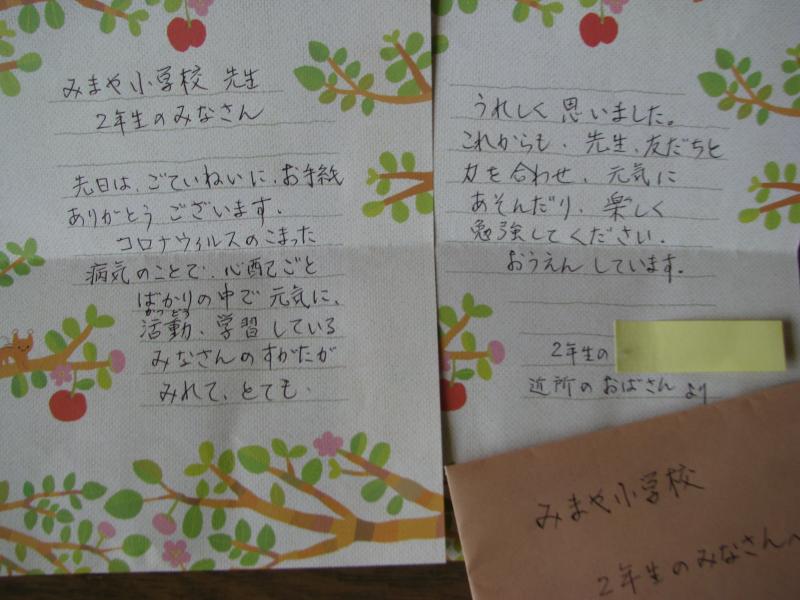 みまや小学校 先生
2年生のみなさん
先日は、ごていねいに、お手紙
ありがとう ございます。
コロナウィルスのこまった
病気のことで、心配ごと
ばかりの中で 元気に、
かつどう
活動、学習 している
みなさんのすがたが
みれて、とても、
うれしく 思いました。
これからも、先生、友だちと
力を合わせ、元気に
あそんだり、楽しく
勉強してください。
おうえん しています。
2年生の
近所の おばさん より
みまや小学校
2年生のみなさんへ